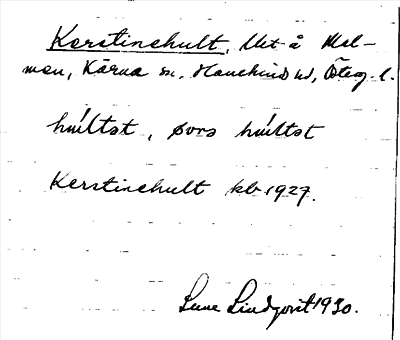 Kerstinehult, Utt å Mal-
men, Kärna sn, Hanekinds hd, Östeg. l.
hu̍ltət, övrs hu̍ltət
Kerstinehult kb 1927.
Sune Lindqvist 1930.